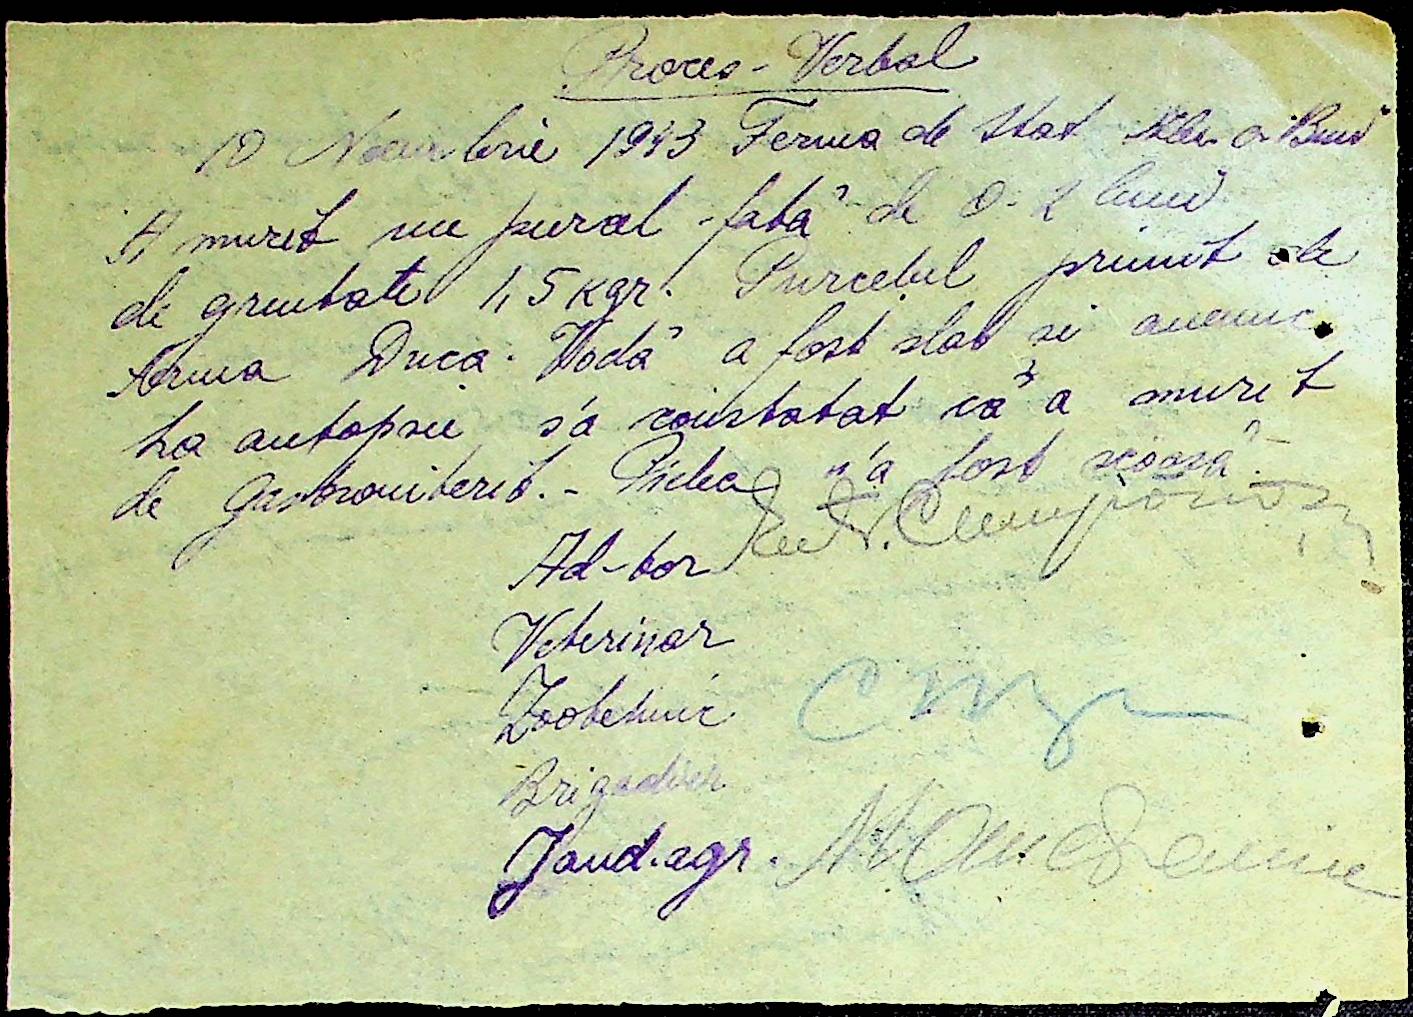 Proces-Verbal
10 Noembrie 1943 Ferma de Stat
A murit un purcel-fată de 0-2 luni
de greutate 1,5 kgr. Purcelul primit de
ferma Duca-Vodă a fost slab și anemic
La autopsie s'a constatat că a murit
de Gastroenterit.- Pielea n'a fost scoasă.-
Ad-tor
Veterinar
Zootehnic
Brigadier
Jand.agr.